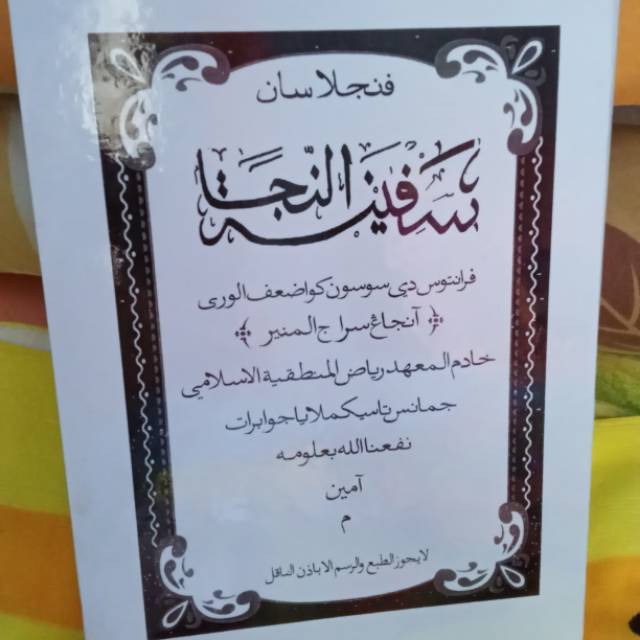 فنجلاسان
سفينة النجا
فرانتوس دي سوسون كو اضعف الورى
﴿ آنجاڠ سراج المنير ﴾
خادم المعهد رياض المنطقية الاسلامي
جمانس تاسيكملايا جوابرات
نفعنا الله بعلومه
آمين
م
لا يجوز الطبع والرسم الا باذن الناقل